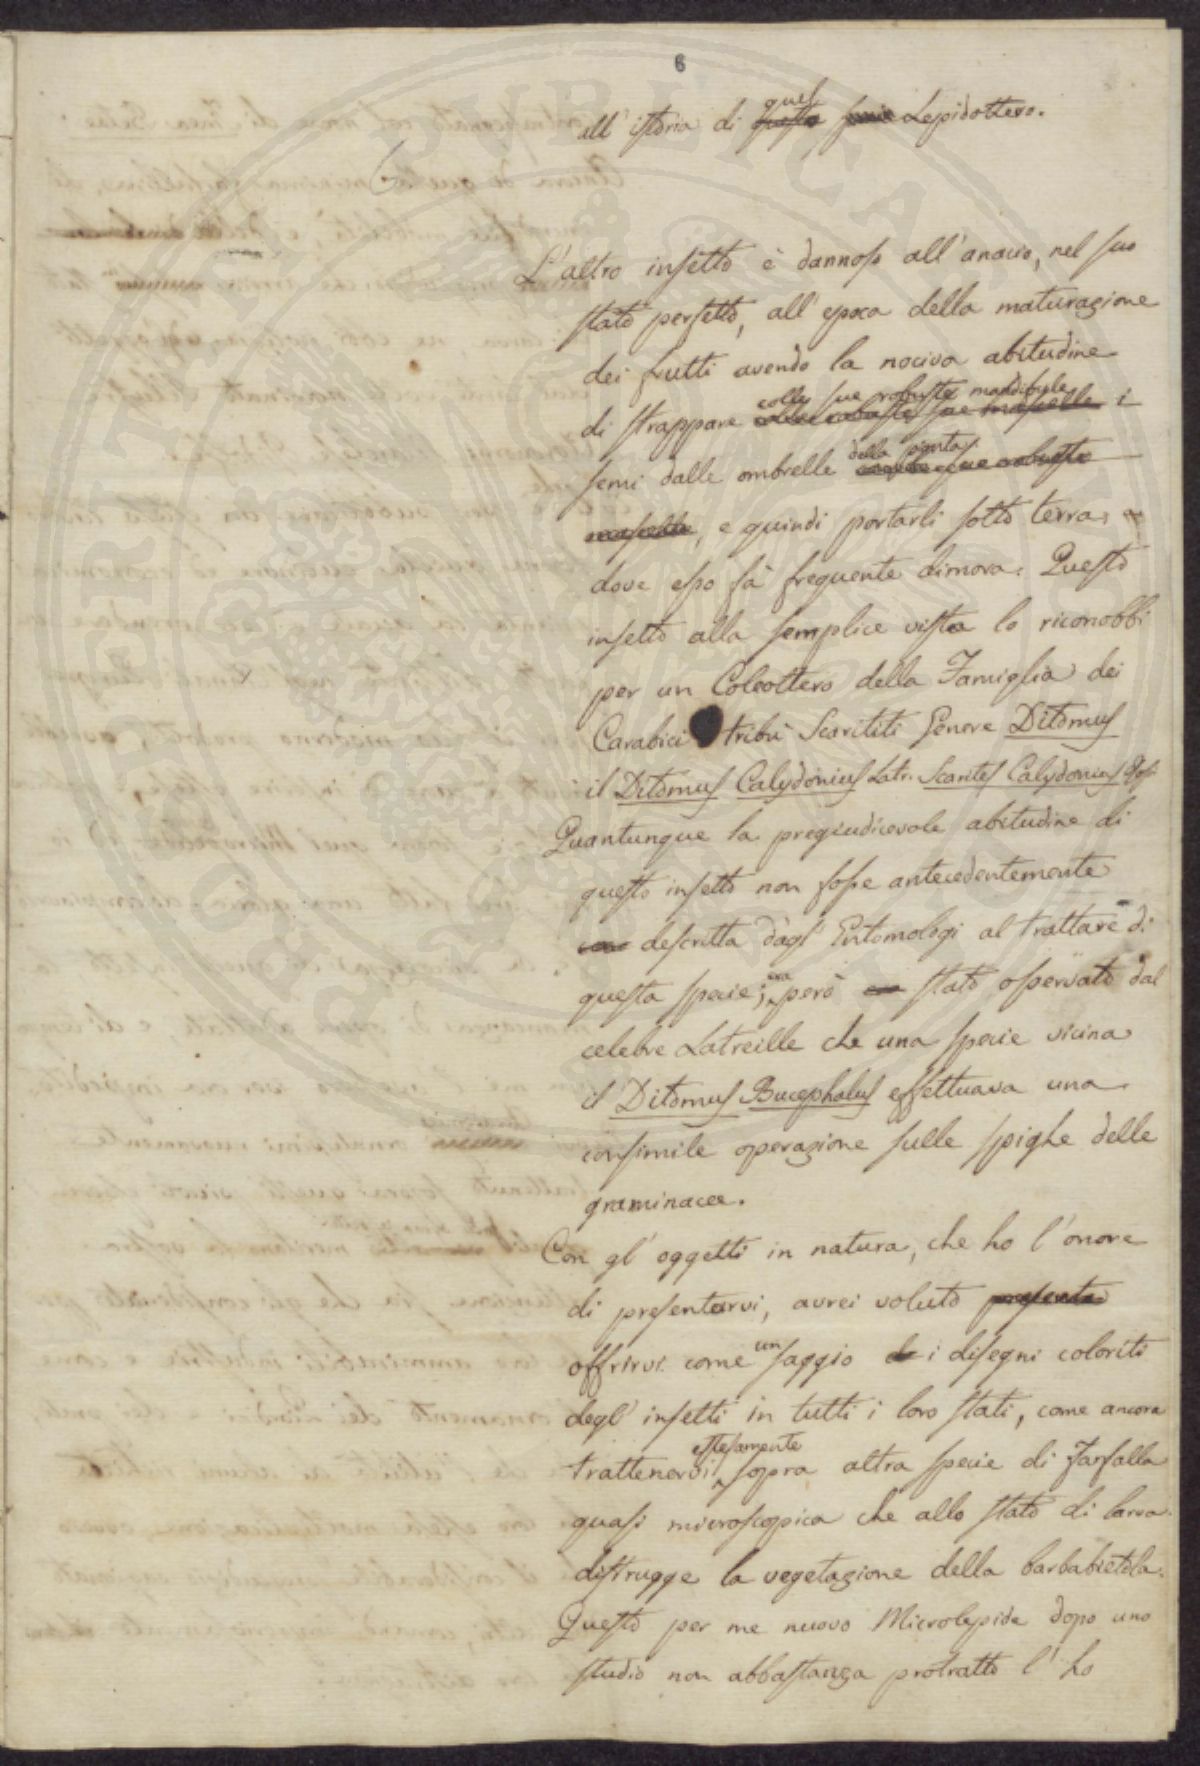 6
all' istoria di quel Lepidottero.
L'altro insetto è dannoso all'anacio, nel suo
stato perfetto, all'epoca della maturazione
dei frutti avendo la nociva abitudine
di strappare colle sue robuste mandibule i
semi dalle ombrelle della pianta
, e quindi portarli sotto terra,
dove esso fà frequente dimora. Questo
insetto alla semplice vista lo riconobbi
per un Coleottero della Famiglia dei
Carabici tribù Scarititi Genere Ditomus
il Ditomus Calydonius Latr. Scarites Calydonius Ross.
Quantunque la pregiudicevole abitudine di
questo insetto non fosse antecedentemente
descritta dagl' Entomologi al trattare di
questa specie; era però stato osservato dal
celebre Latreille che una specie vicina
il Ditomus Bucephalus effettuava una
consimile operazione sulle spighe delle
graminacee.
Con gl'oggetti in natura, che ho l'onore
di presentarvi, avrei voluto presenta
offrirvi come un saggio i disegni coloriti
degl' insetti in tutti i loro stati, come ancora
trattenervi estesamente sopra altra specie di Farfalla
quasi microscopica che allo stato di larva
distrugge la vegetazione della barbabietola.
Questo per me nuovo Microlepide dopo uno
studio non abbastanza protratto l'ho